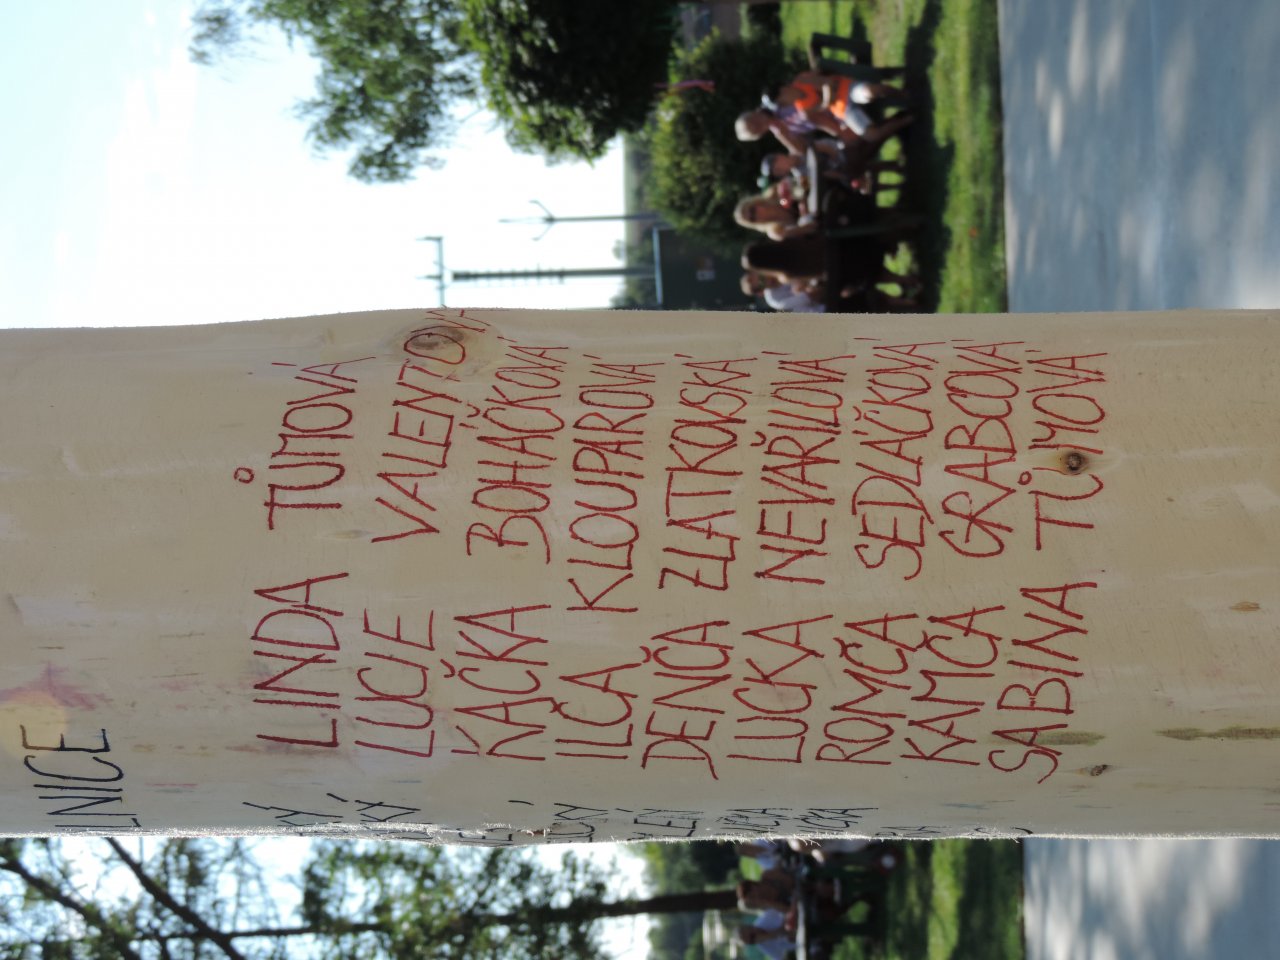 LNICE
LINDA TŮMOVÁ
LUCIE VALENTOVÁ
KAČKA BOHÁČKOVÁ
ILČA KLOUPAROVÁ
DENČA ZLATKOVSKÁ
LUCKA NEVAŘILOVÁ
ROMČA SEDLAČKOVÁ
KAMČA GRABCOVÁ
SABINA TŮMOVÁ